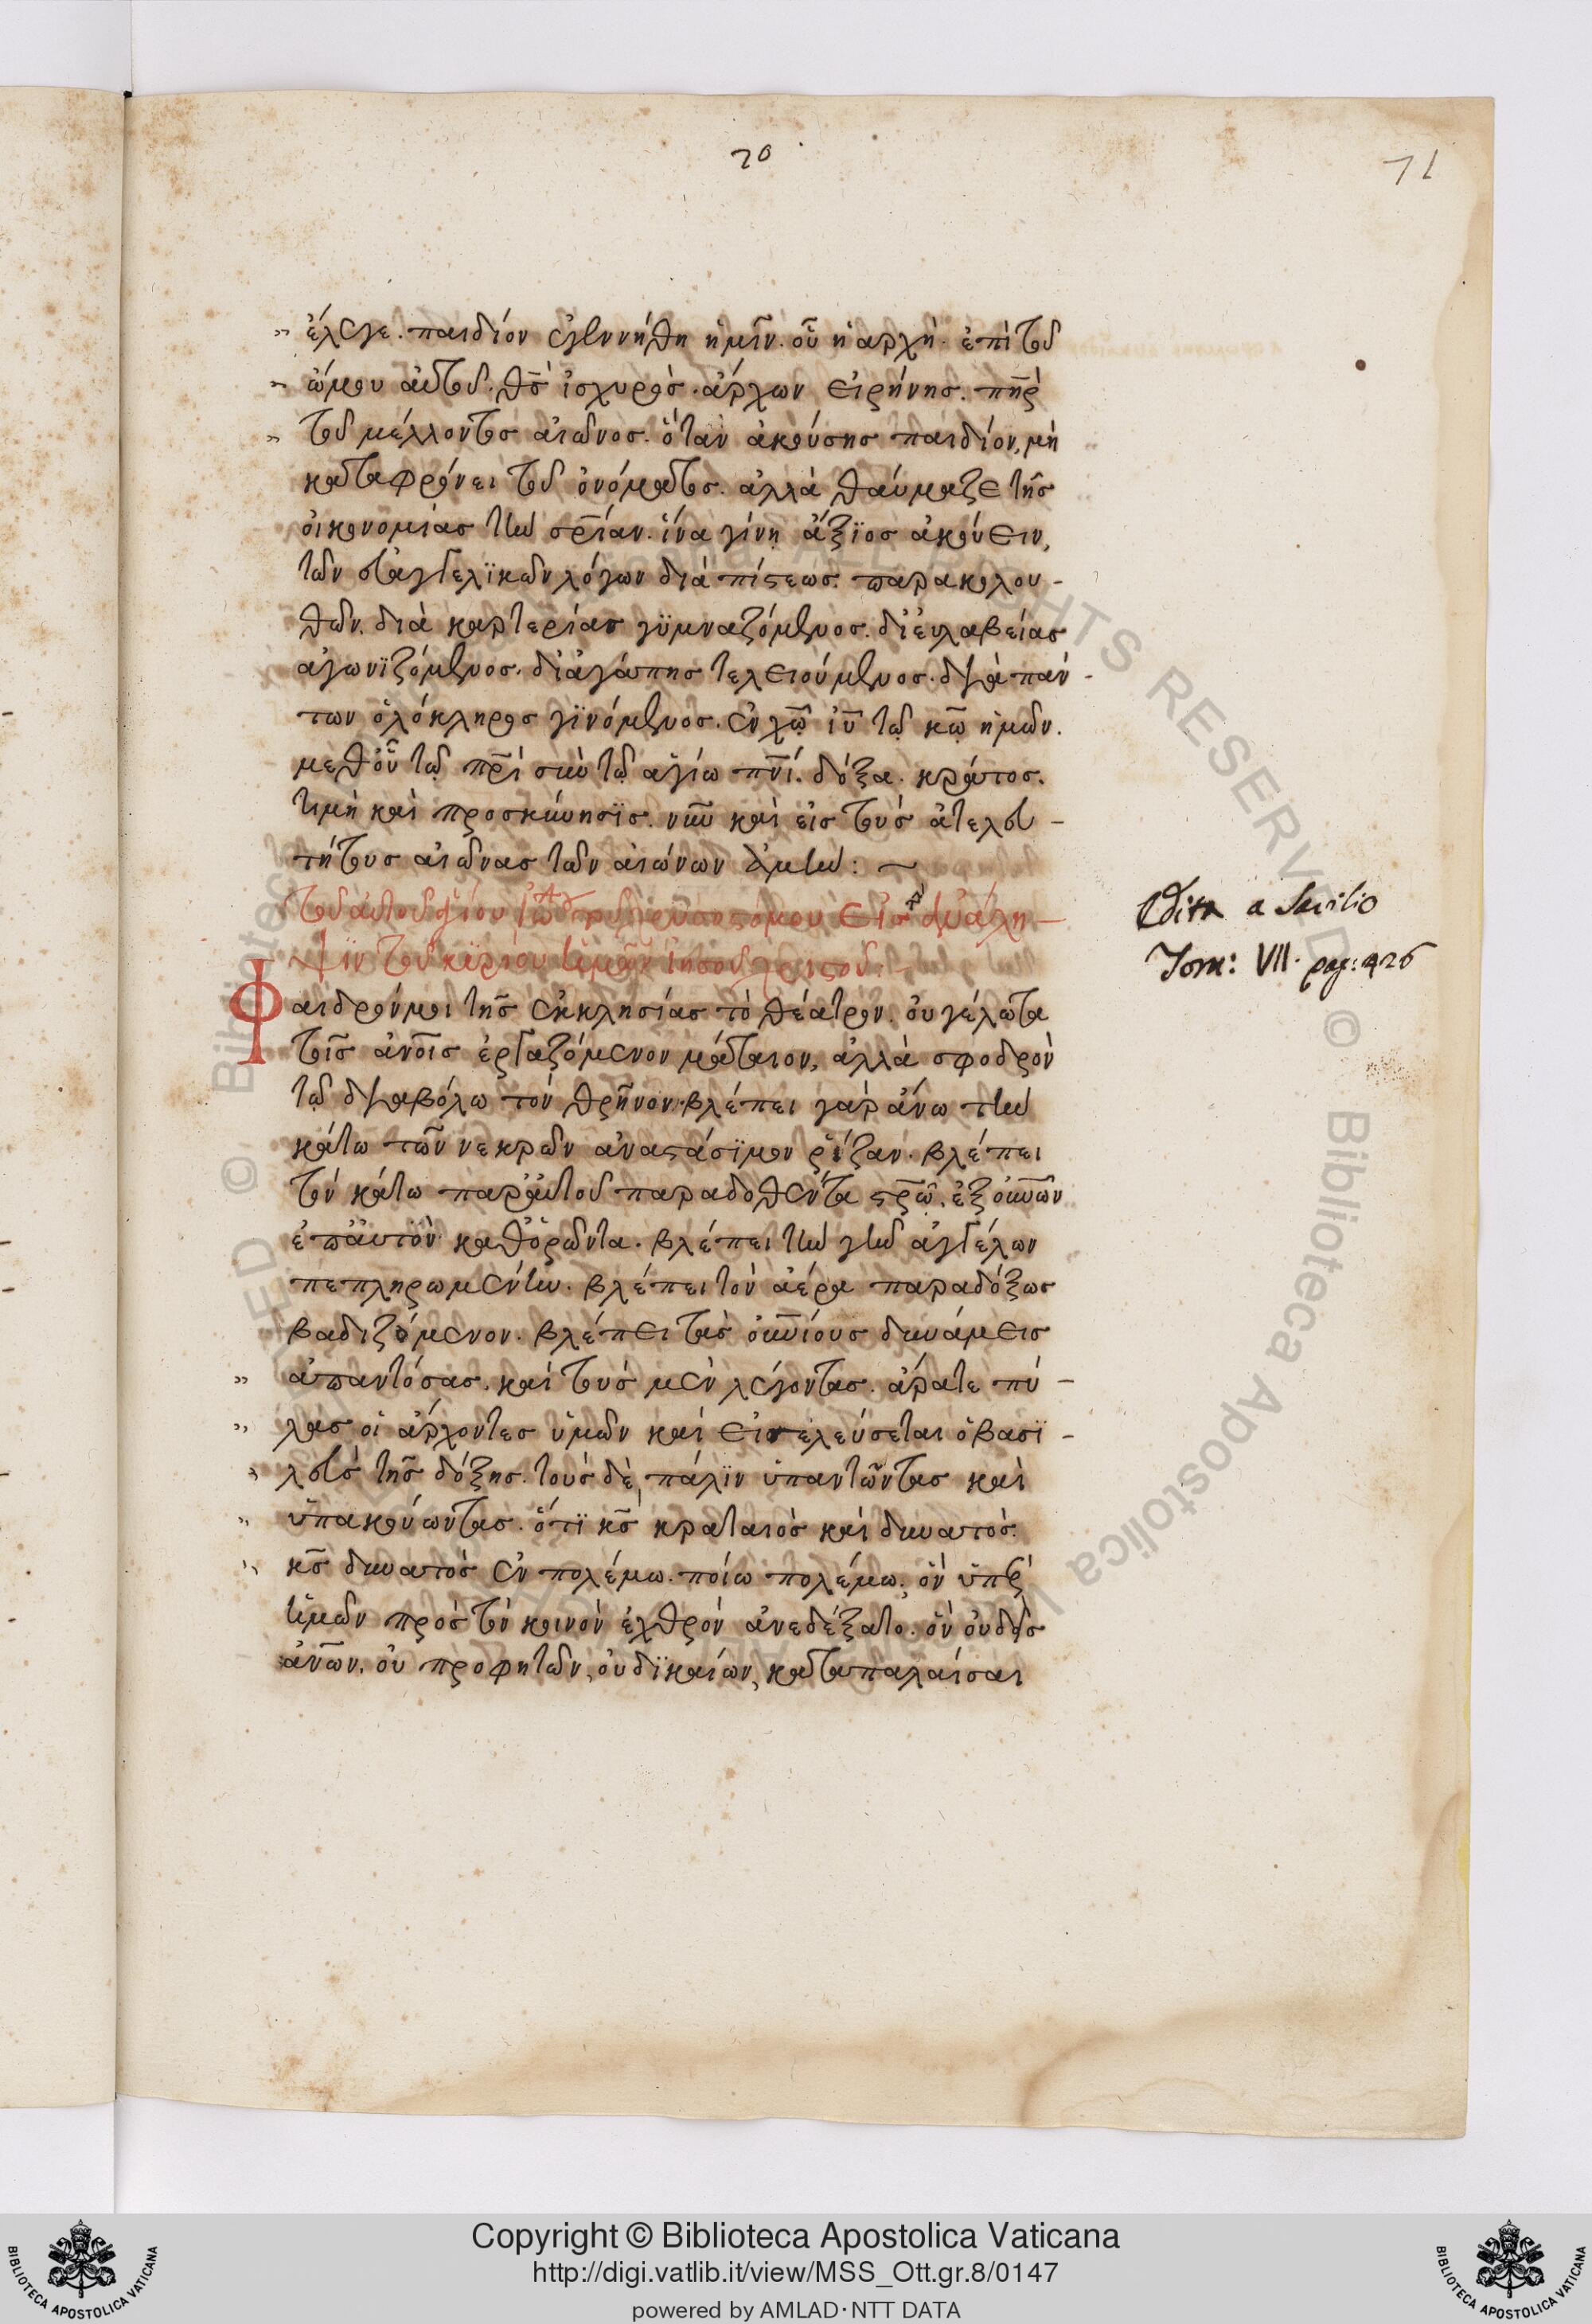 70
71
ἔλεγε. παιδίον ἐγεννήθη ἡμῖν. οὗ ἡ ἀρχὴ. ἐπὶ τοῦ
ὤμου αὐτοῦ. θς ἰσχυρὸς. ἄρχων εἰρήνης. πηρ
τοῦ μέλλοντος αἰῶνος. ὅταν ἀκούσης παιδίον, μὴ
καταφρόνει τοῦ ὀνόματος. ἀλλὰ θαύμαζε τῆς
οἰκονομίας τὴν σρίαν. ἵνα γίνη ἄξϊος ἀκούειν,
τῶν εὐαγγελϊκῶν λόγων διὰ πίστεως. παρακολου-
θῶν. διὰ καρτερίας γϋμναζόμενος. δι' εὐλαβείας
ἀγωνϊζόμενος. δι' ἀγάπης τελειούμενος. διὰ πάν-
των ὁλόκληρος γϊνόμενος. ἐν χω ιυ τῶ κω ἡμῶν.
μεθ' οὗ τῶ πρι σὺν τῶ ἁγίω πνι. δόξα. κράτος.
τιμὴ καὶ προσκύνησϊς. νῦν καὶ εἰς τοὺς ἀτελευ-
τήτους αἰῶνας τῶν αἰώνων ἀμήν: ~
τοῦ αὐτοῦ ἁγίου ἰω τοῦ χρυσοστόμου εἰς τὴν ἀνάλη-
ψϊν τοῦ κϋρίου ἡμῶν ἰησοῦ χριστοῦ:
Φαιδρόν μοι τῆς ἐκκλησίας τὸ θέατρον. οὐ γέλωτα
τοῖς ανοις ἐργαζόμενον μάταιον, ἀλλὰ σφοδρὸν
τῶ διαβόλω τὸν θρῆνον. βλέπει γὰρ ἄνω τὴν
κάτω τῶν νεκρῶν ἀναστάσϊμον ῥίζαν. βλέπει
τὸν κάτω παρ' αὐτοῦ παραδοθέντα στρω. ἐξ ουνων
ἐπ' αὐτὸν καθορῶντα. βλέπει τὴν γῆν ἀγγέλων
πεπληρωμένην. βλέπει τὸν ἀέρα παραδόξως
βαδιζόμενον. βλέπει τὰς ουνίους δυνάμεις
ἀπαντόσας. καὶ τοὺς μὲν λέγοντας. ἄρατε πύ-
λας οἱ ἄρχοντες ὑμῶν καὶ εἰσελεύσεται ὁ βασϊ-
λεὺς τῆς δόξης. τοὺς δὲ, πάλϊν ὑπαντῶντας καὶ
ὑπακούωντας. ὅτϊ κς κραταιὸς καὶ δυνατὸς.
κς δυνατὸς ἐν πολέμω. ποίω πολέμω. ὃν ὑπὲρ
ἡμῶν πρὸς τὸν κοινὸν ἐχθρὸν ἀνεδέξατο. ὃν οὐδεὶς
ανων. οὐ προφητῶν, οὐ δϊκαίων, καταπαλαίσαι
Edita a Savilio
Tom: VII. pag: 426
Copyright © Biblioteca Apostolica Vaticana
http://digi.vatlib.it/view/MSS_Ott.gr.8/0147
powered by AMLAD·NTT DATA
BIBLIOTECA APOSTOLICA VATICANA
BIBLIOTECA APOSTOLICA VATICANA